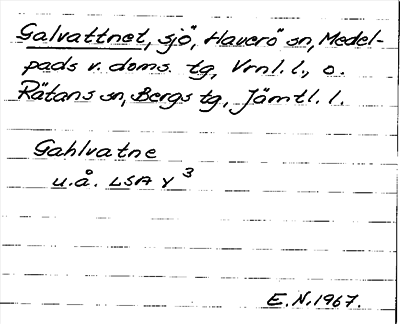 Galvattnet, sjö, Haverö sn, Medel-
pads v. doms. tg, Vrnl. l., o.
Rätans sn, Bergs tg, Jämtl. l.
Gahlvatne
u.å. LSA Y 3
E.N. 1967.